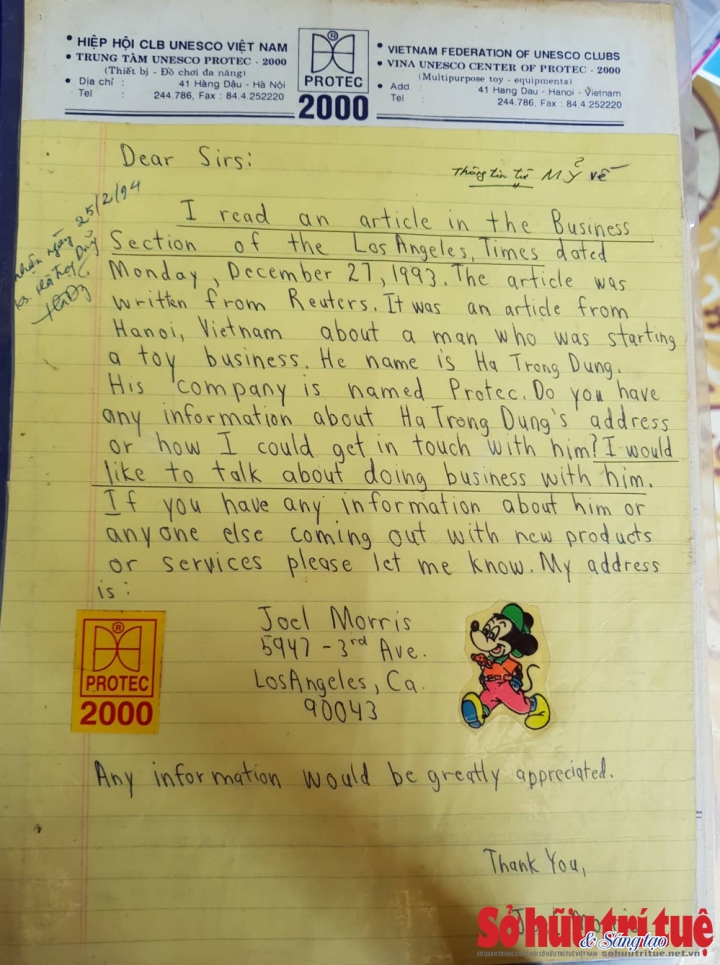 • HIỆP HỘI CLB UNESCO VIỆT NAM
• TRUNG TÂM UNESCO PROTEC - 2000
(Thiết bị - Đồ chơi đa năng)
• Địa chỉ : 41 Hàng Dậu - Hà Nội
Tel : 244.786, Fax : 84.4.252220
®
PROTEC
2000
• VIETNAM FEDERATION OF UNESCO CLUBS
• VINA UNESCO CENTER OF PROTEC - 2000
(Multipurpose toy - equipments)
• Add : 41 Hang Dau - Hanoi - Vietnam
Tel : 244.786, Fax : 84.4.252220
Dear Sirs:
Thông tin từ Mỹ về
25/2/94
I read an article in the Business
Section of the Los Angeles, Times dated
Monday, December 27, 1993. The article was
written from Reuters. It was an article from
Hanoi, Vietnam about a man who was starting
a toy business. He name is Ha Trong Dung.
His company is named Protec. Do you have
any information about Ha Trong Dung's address
or how I could get in touch with him? I would
like to talk about doing business with him.
If you have any information about him or
anyone else coming out with new products
or services please let me know. My address
is:
Joel Morris
5947 - 3rd Ave.
Los Angeles, Ca.
90043
®
PROTEC
2000
Any information would be greatly appreciated.
Thank You,
Sở hữu trí tuệ
& Sáng tạo
sohuutritue.net.vn